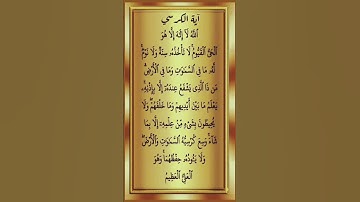 آية الكرسي
اللَّهُ لَا إِلَٰهَ إِلَّا هُوَ
الْحَيُّ الْقَيُّومُ لَا تَأْخُذُهُ سِنَةٌ وَلَا نَوْمٌ
لَّهُ مَا فِي السَّمَٰوَٰتِ وَمَا فِي الْأَرْضِ
مَن ذَا الَّذِي يَشْفَعُ عِندَهُ إِلَّا بِإِذْنِهِ
يَعْلَمُ مَا بَيْنَ أَيْدِيهِمْ وَمَا خَلْفَهُمْ وَلَا
يُحِيطُونَ بِشَيْءٍ مِّنْ عِلْمِهِ إِلَّا بِمَا
شَاءَ وَسِعَ كُرْسِيُّهُ السَّمَٰوَٰتِ وَالْأَرْضَ
وَلَا يَئُودُهُ حِفْظُهُمَا وَهُوَ
الْعَلِيُّ الْعَظِيمُ